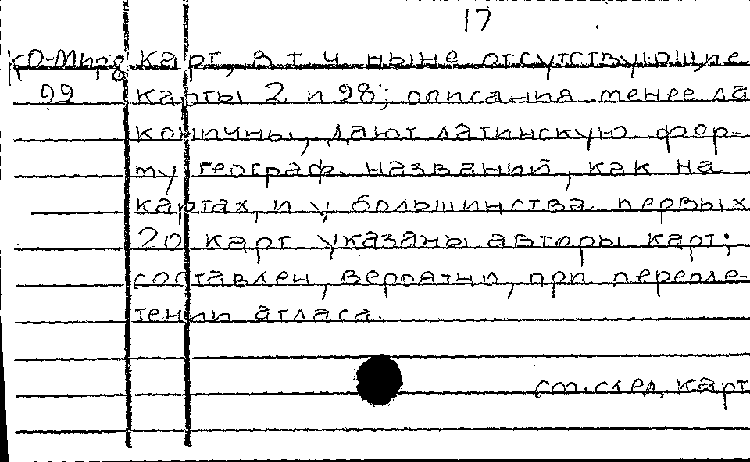 17
КО-Мир/8 карт, в т ч ныне отсутствующие
99 карты 2 и 98; описания менее ла
коничны, дают латинскую фор-
му географ. названий, как на
картах, и у большинства первых
20 карт указаны авторы карт;
составлен, вероятно, при перепле-
тении атласа.
см. след. карт